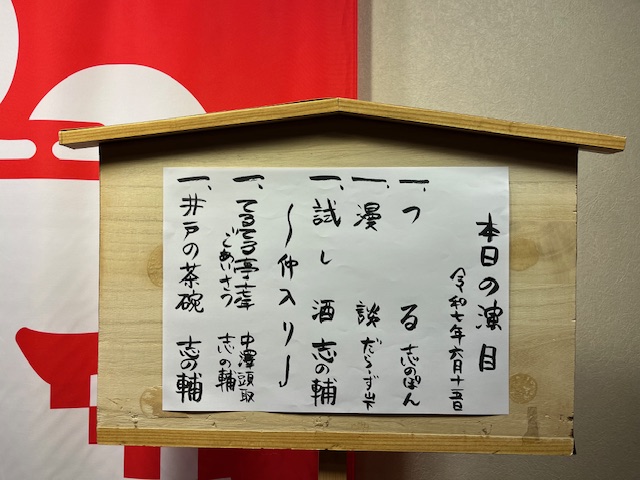 本日の演目
令和七年六月十五日
一、つる 志のぽん
一、漫談
一、試し酒 志の輔
〜仲入り〜
一、てるてる亭 中澤頭取
ごあいさつ 志の輔
一、井戸の茶碗 志の輔